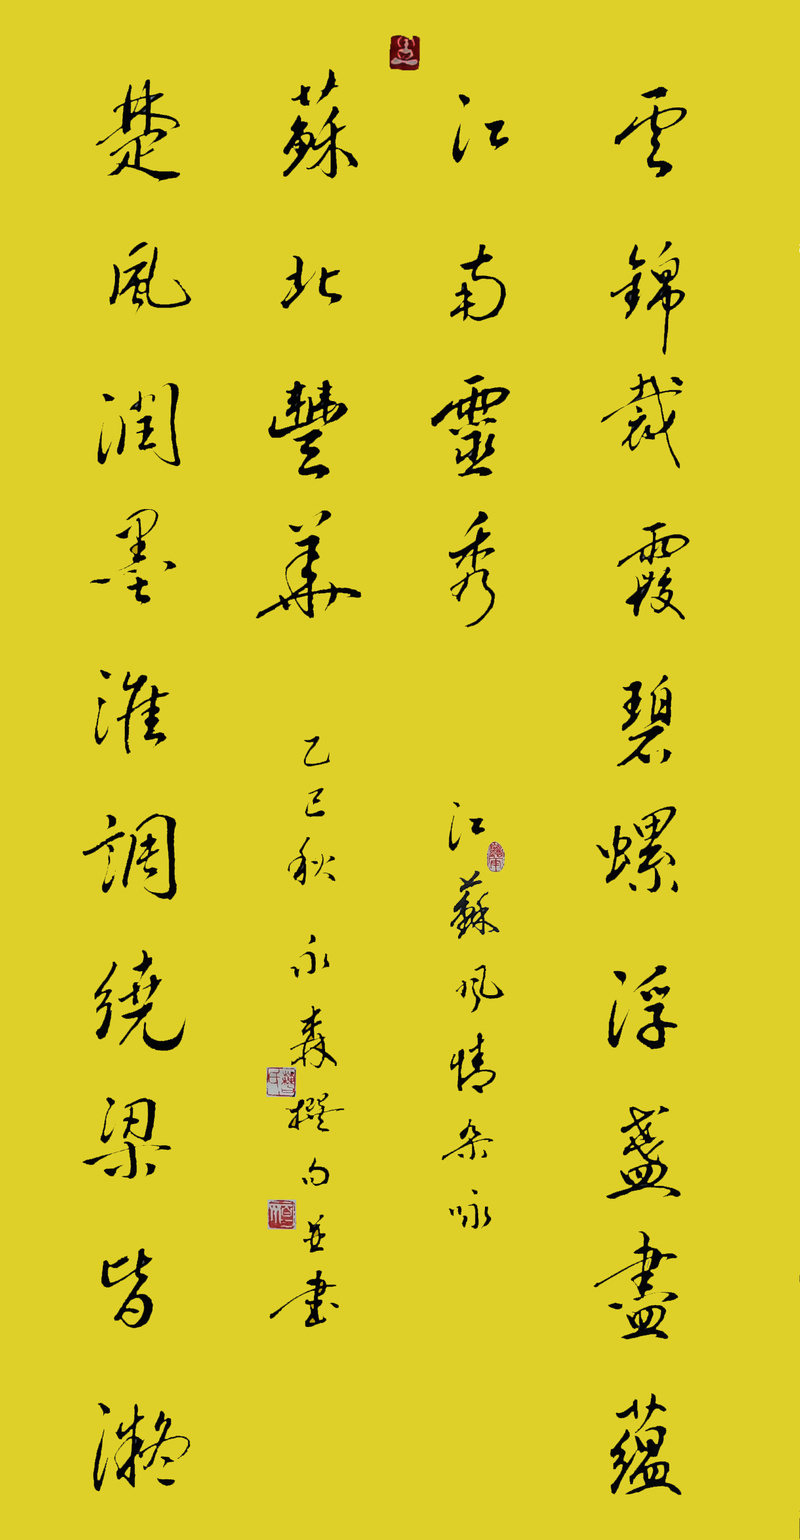 雲錦裁霞碧螺浮盞盡蘊
江南靈秀
楚風潤墨淮調繞梁皆凝
蘇北豐華
江蘇風情杂咏
乙巳秋 永森撰句並書